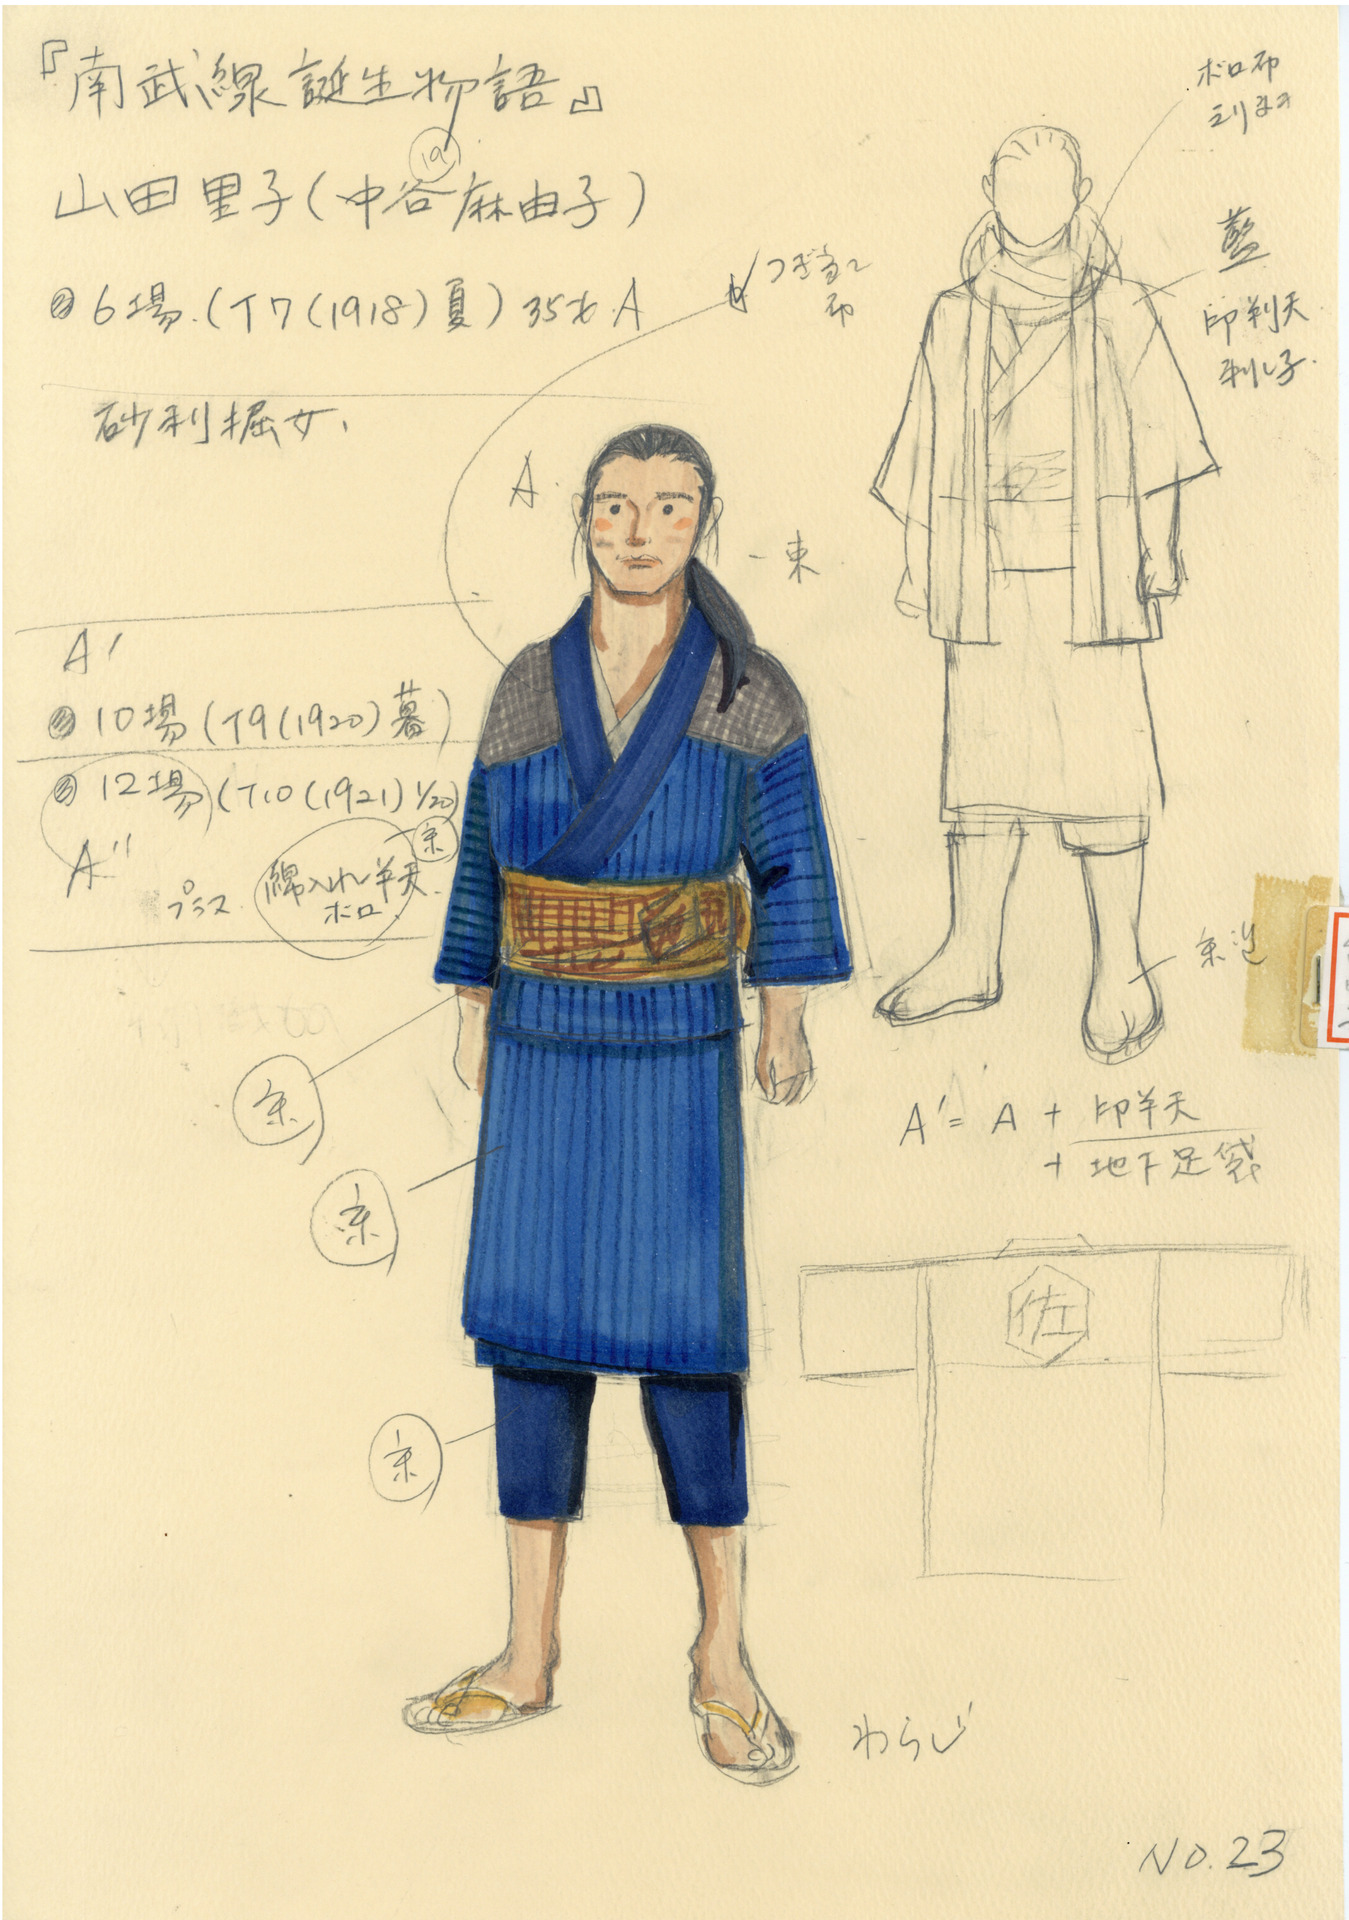 『南武線誕生物語』
19
山田里子(中谷麻由子)
6場.(T7(1918)夏)35才.A
砂利掘女.
つぎ当て
布
A.
一束
A'
10場(T9(1920)暮)
12場(T10(1921)1/20)
A"
プラス
綿入れ半天.
ボロ
ボロ布
えりまき
藍
印半天
刺し子.
A'=A+印半天
+地下足袋
佐
わらじ
NO.23